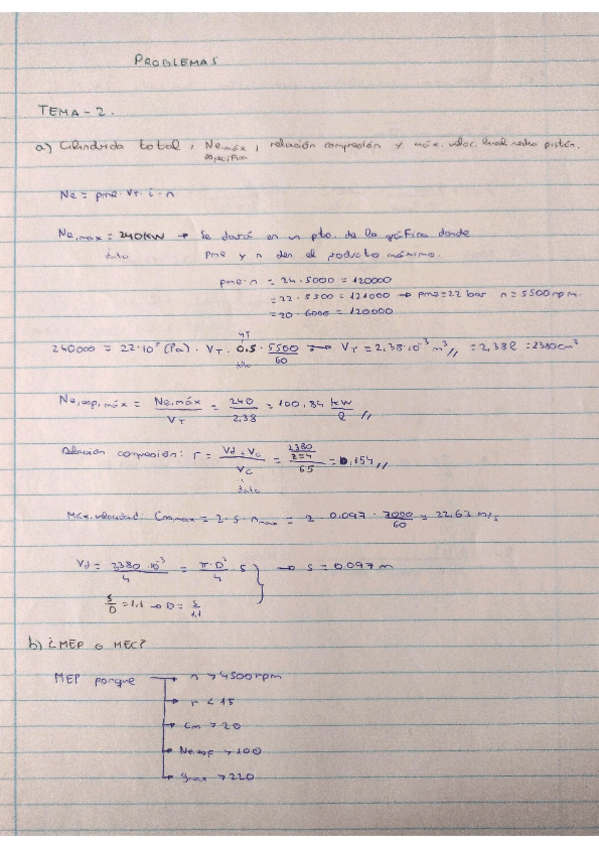 PROBLEMAS
TEMA-2.
a) Cilindrada total, Ne máx específica, relación compresión y máx. veloc. lineal media pistón.
Ne = pme · VT · i · n
Ne,max = 240KW → Se dará en un pto. de la gráfica donde
dato pme y n den el producto máximo.
pme·n = 24·5000 = 120000
= 22·5500 = 121000 → pme=22 bar n=5500rpm.
= 20·6000 = 120000
240000 = 22·10⁵ (Pa) · VT · 0.5 · 5500/60 → VT = 2,38·10⁻³ m³ // = 2,38 l = 2380cm³
4T
dto
Ne,esp,máx = Ne,máx / VT = 240 / 2,38 = 100,84 kW/l //
Relación compresión: r = Vd + Vc / Vc = 2380/z=4 / 65 = ,154 //
dato
Máx. velocidad: Cm,max = 2 · S · nmax = 2 · 0.097 · 7000/60 = 22,63 m/s
Vd = 2380·10⁻³ / 4 = π·D² / 4 · S } → S = 0.097 m
S/D = 1,1 → D = S/1,1
b) ¿MEP o MEC?
MEP porque → n > 4500rpm
→ r < 15
→ Cm > 20
→ Ne esp > 100
→ > 220